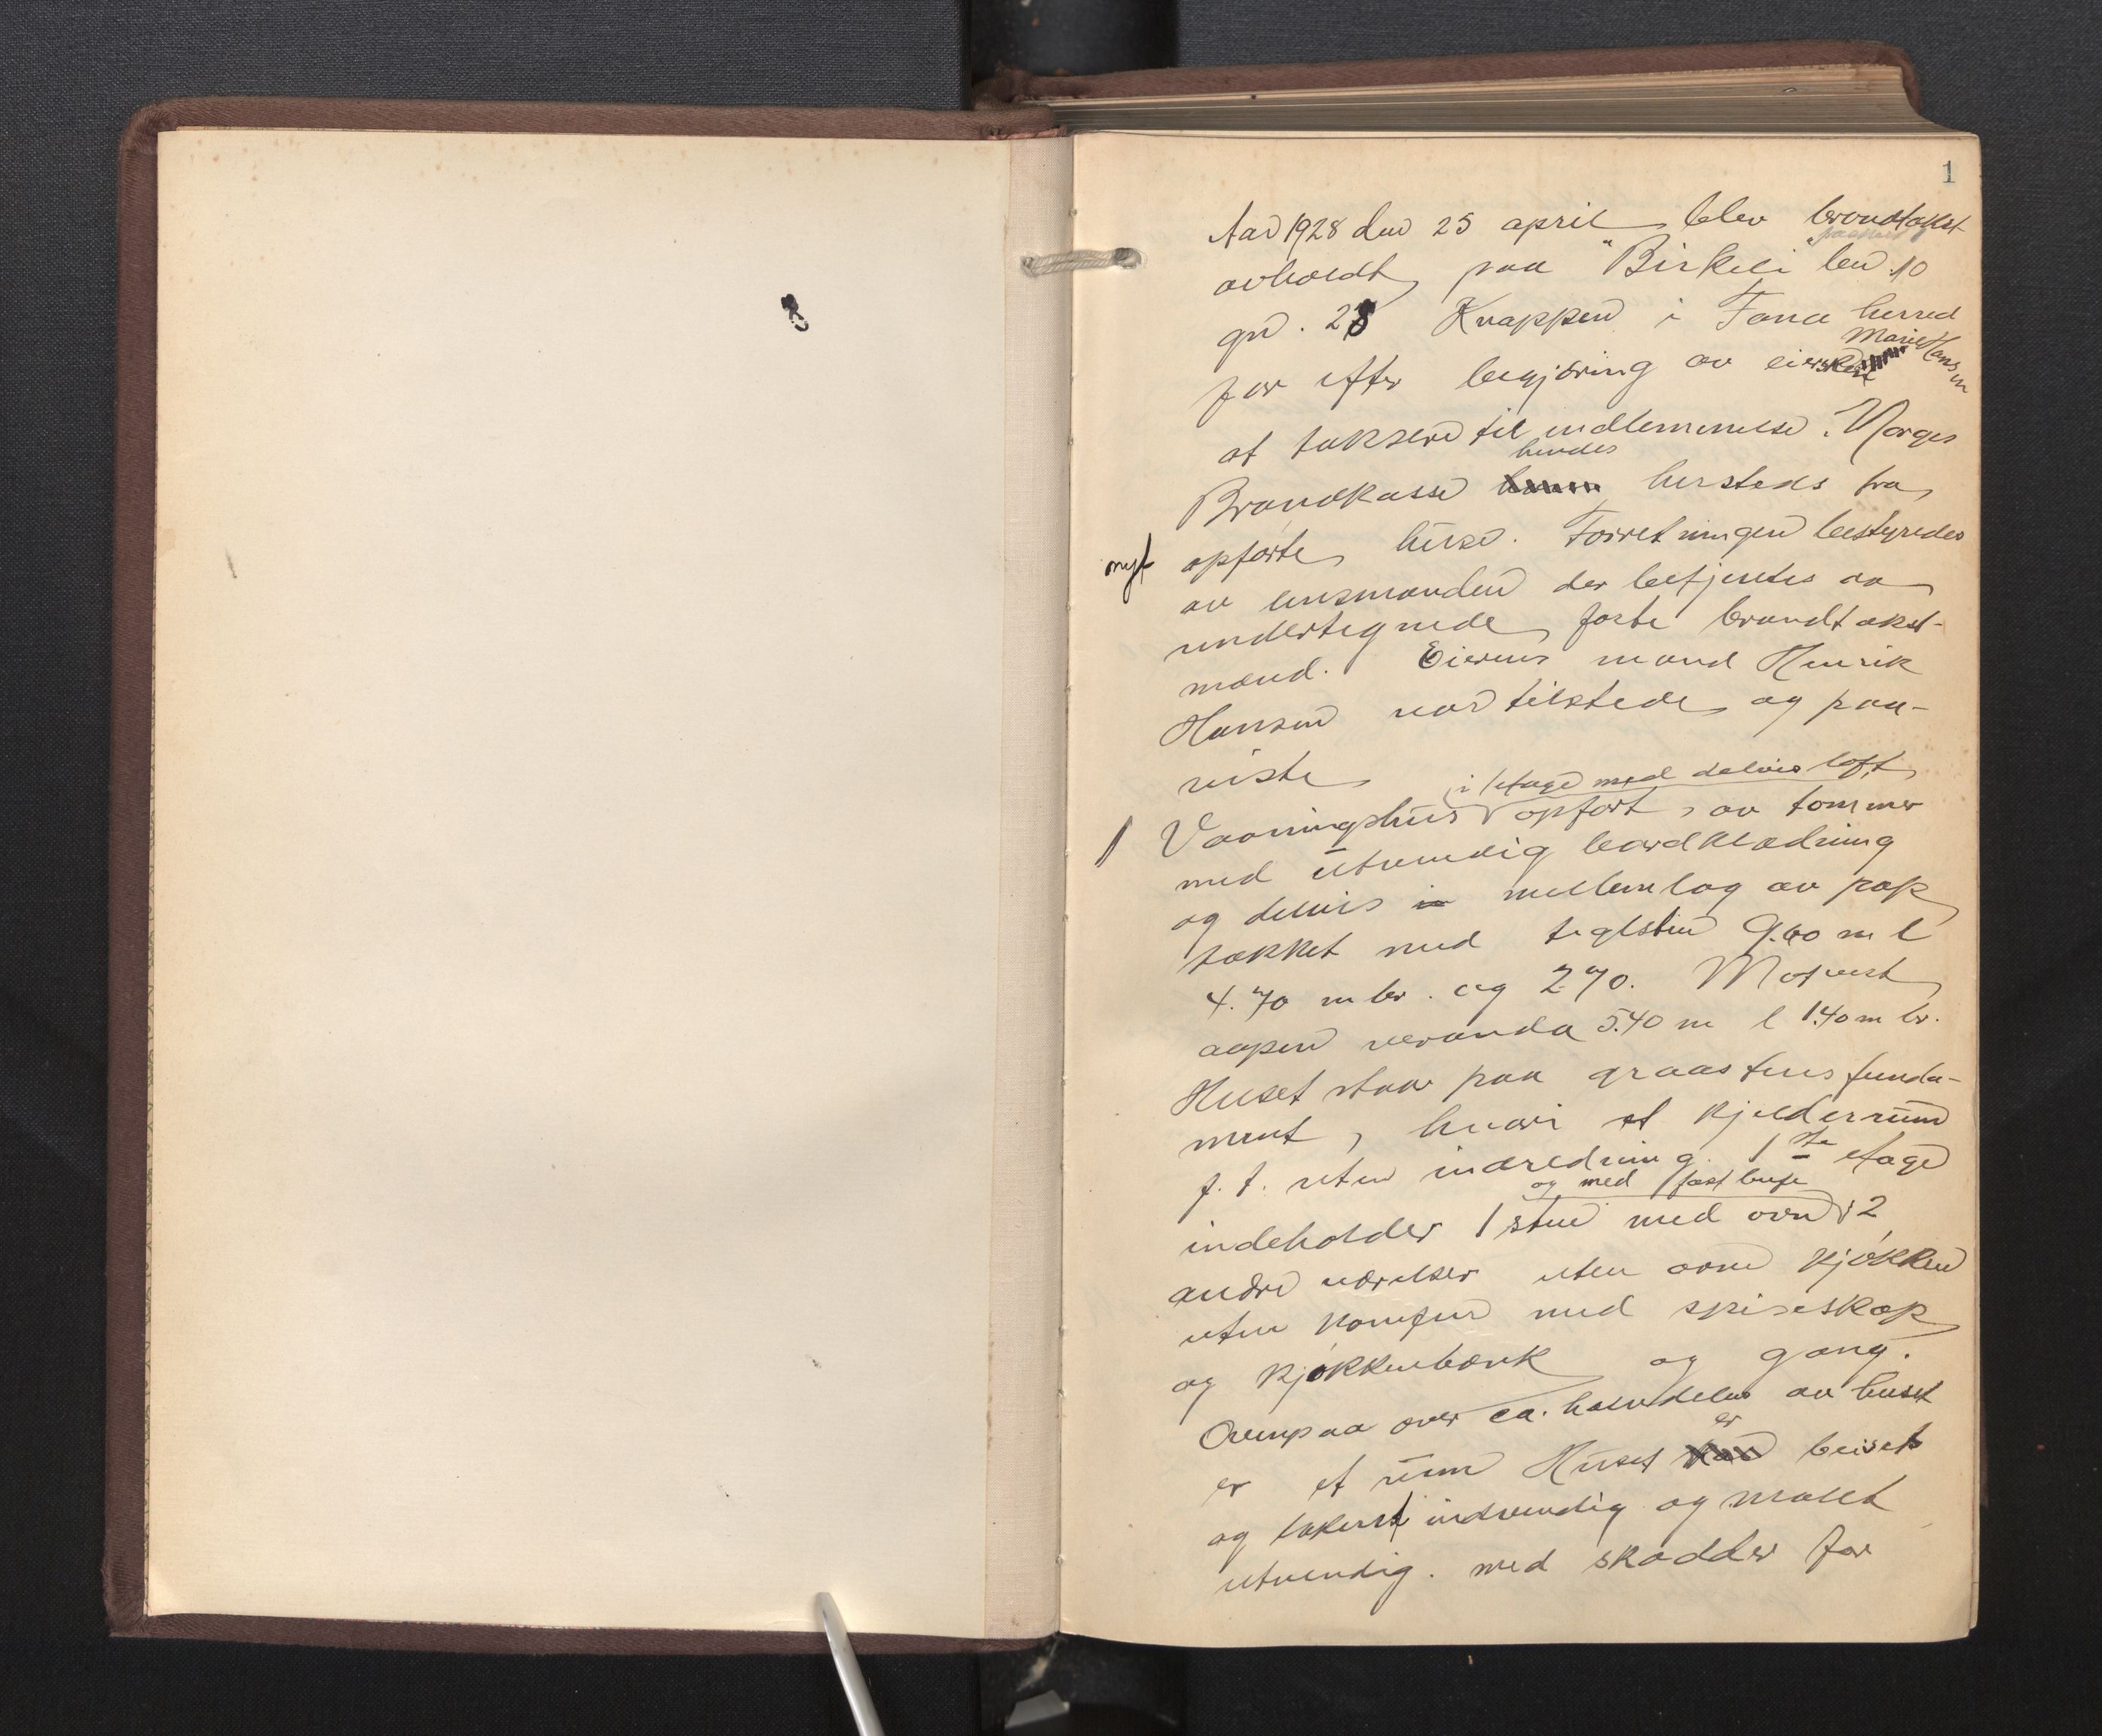 1
Aar 1928 den 25 april blev brandtakst
avholdt paa "Birkeli" bn. 10
gn. 28 Knappen i Fana herred
Marie Hansen
for efter begjæring av eiersken
at taksere til indlemmelse i Norges
hendes
Brandkasse hersteds fra
nyt opførte huse. Forretningen bestyredes
av lensmanden der betjentes av
undertegnede faste brandtakst-
mænd. Eierens mand Henrik
Hansen var tilstede og paa-
viste
i 1 etage med delvis loft
1 Vaaningshus opført, av tømmer
med utvendig bordklædning
og delvis mellemlag av pap
tækket med teglsten 9.60 m l
4.70 m br. og 2.70. Mot vest
aapen veranda 5.40 m l 1.40 m br.
Huset staar paa graastens funda-
ment, hvori et kjelderrum
f. t. uten indredning. 1ste etage
og med fast
indeholder 1 stue med ovn 2
andre værelser uten ovne kjøkken
uten komfur med spiseskap
og kjøkkenbænk og gang.
Ovenpaa over ca. halvdelen av huset
er
er et rum Huset beiset
og lakert indvendig og malet
utvendig. med skodder for